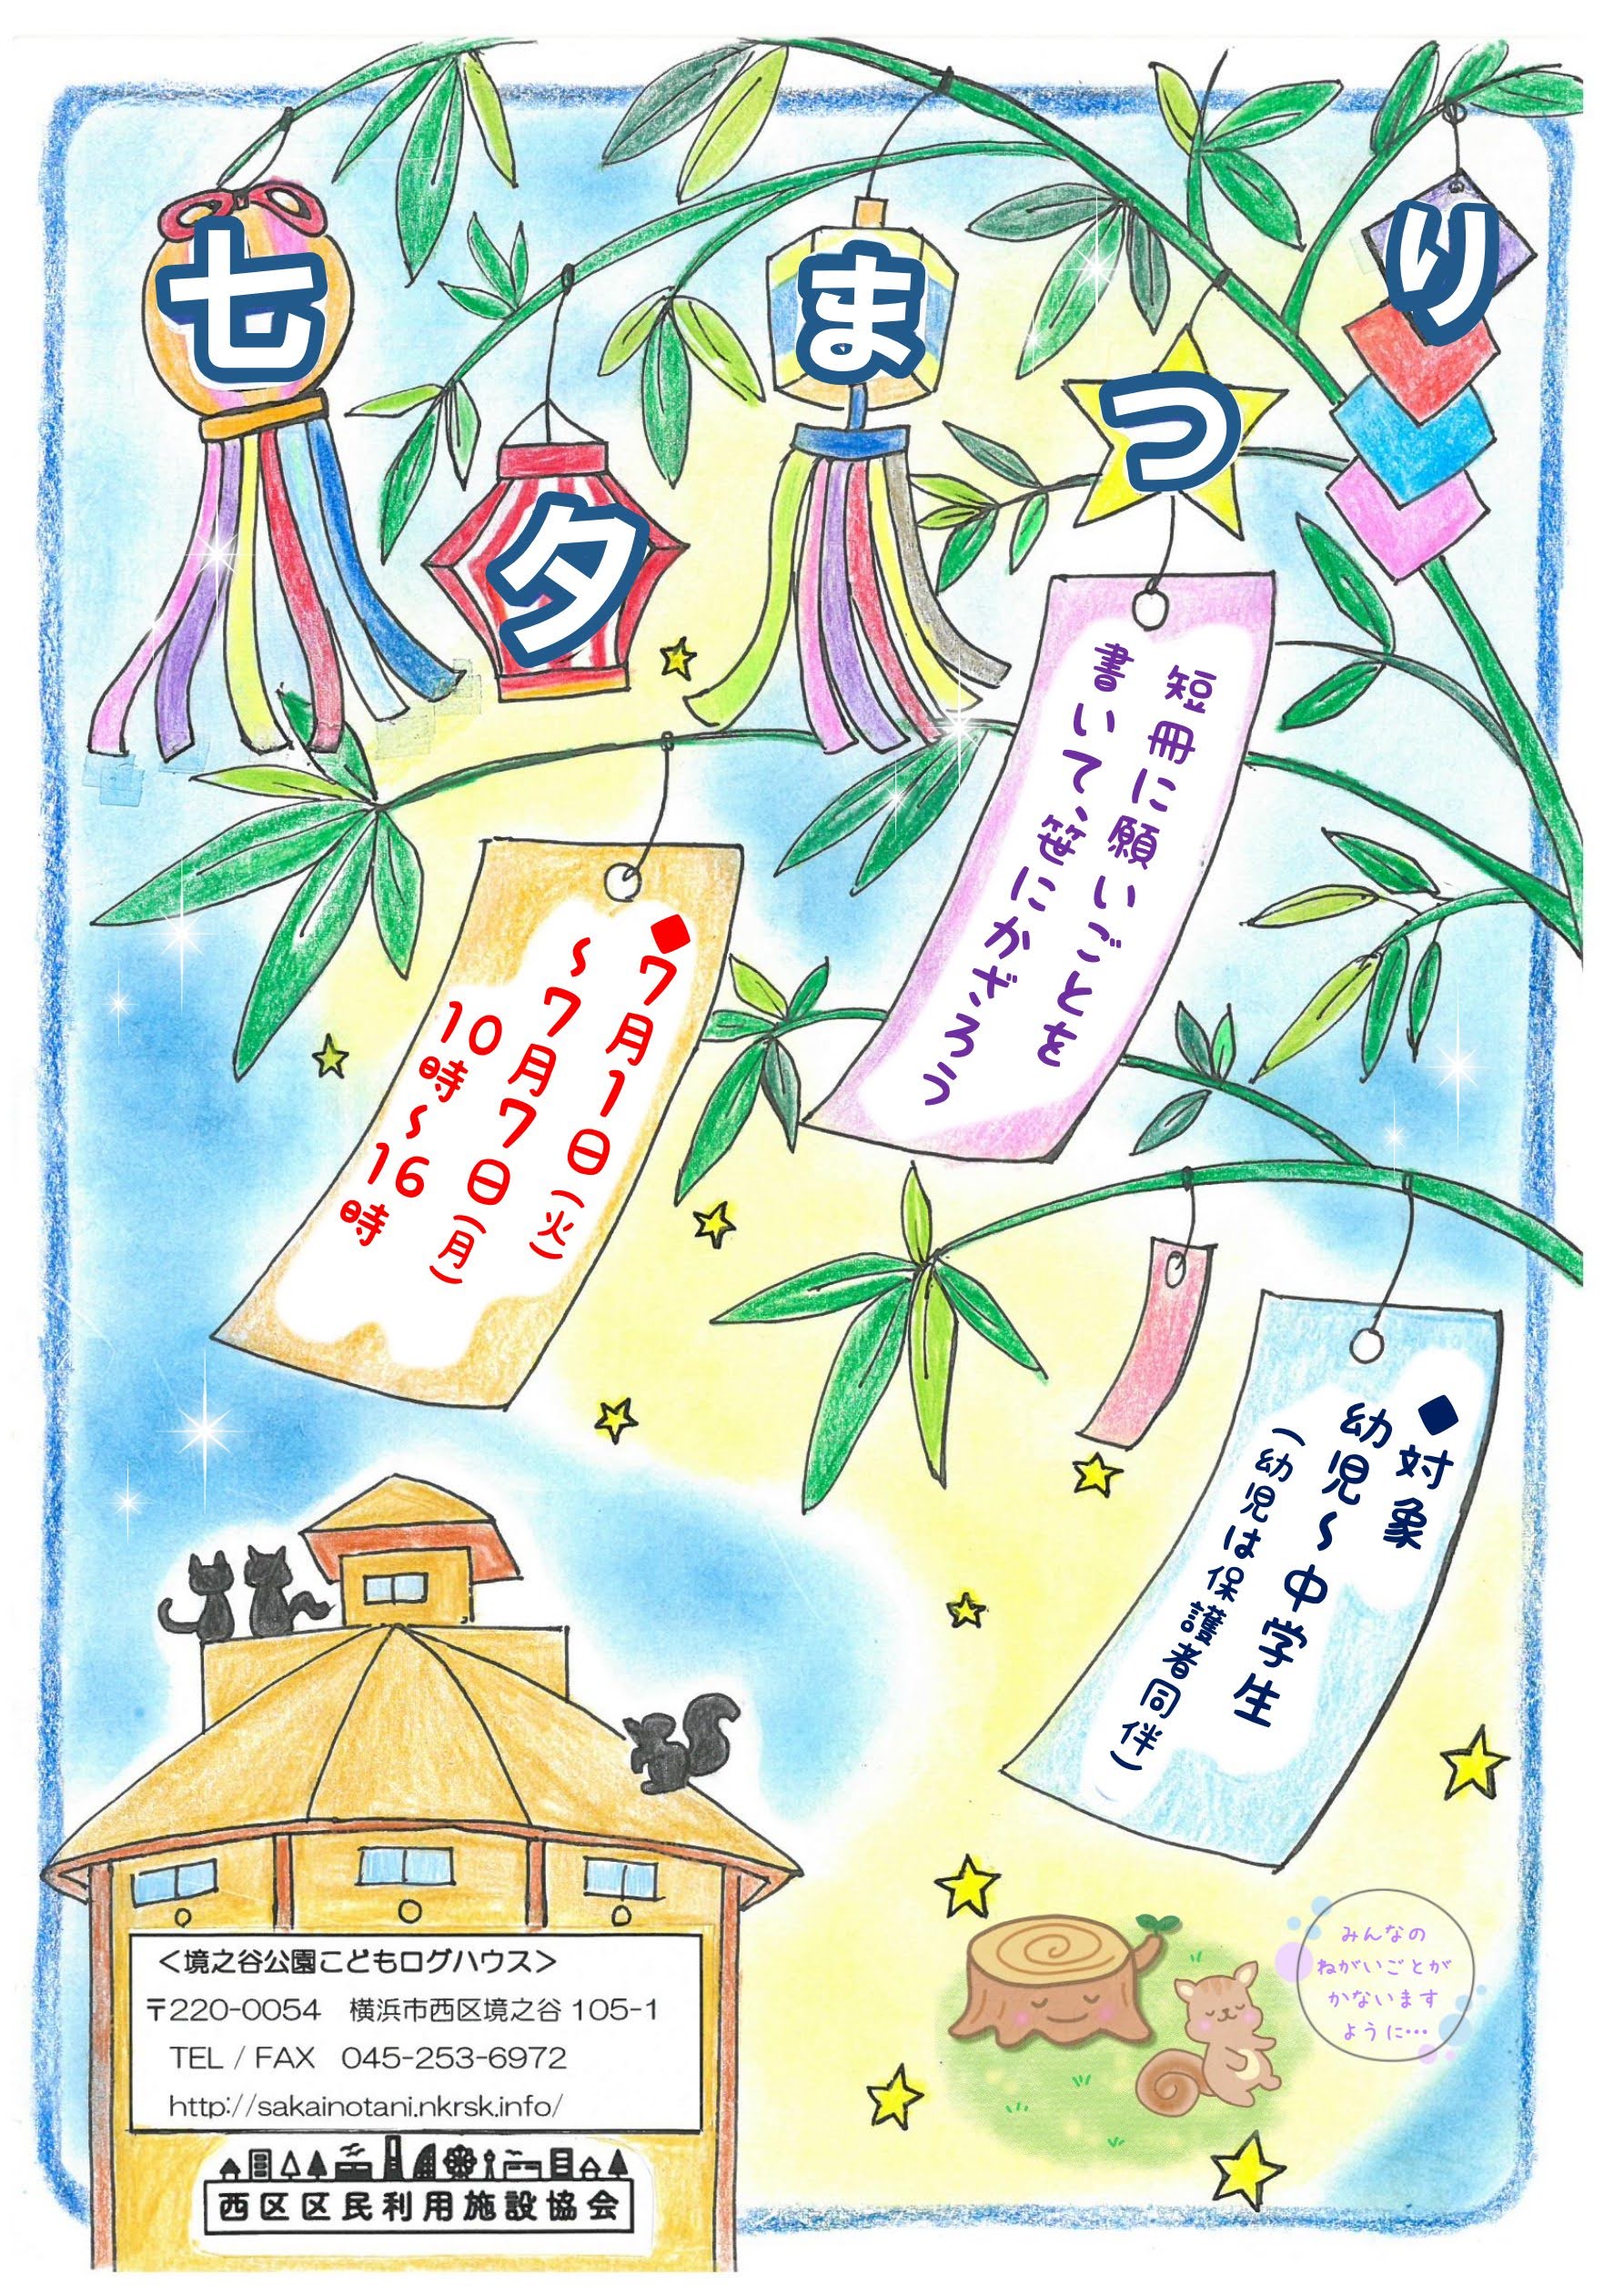 七夕まつり
短冊に願いごとを
書いて、笹にかざろう
◆7月1日(火)
～7月7日(月)
10時～16時
◆対象
幼児～中学生
(幼児は保護者同伴)
みんなの
ねがいごとが
かないます
ように…
＜境之谷公園こどもログハウス＞
〒220-0054 横浜市西区境之谷105-1
TEL / FAX 045-253-6972
http://sakainotani.nkrsk.info/
西区区民利用施設協会